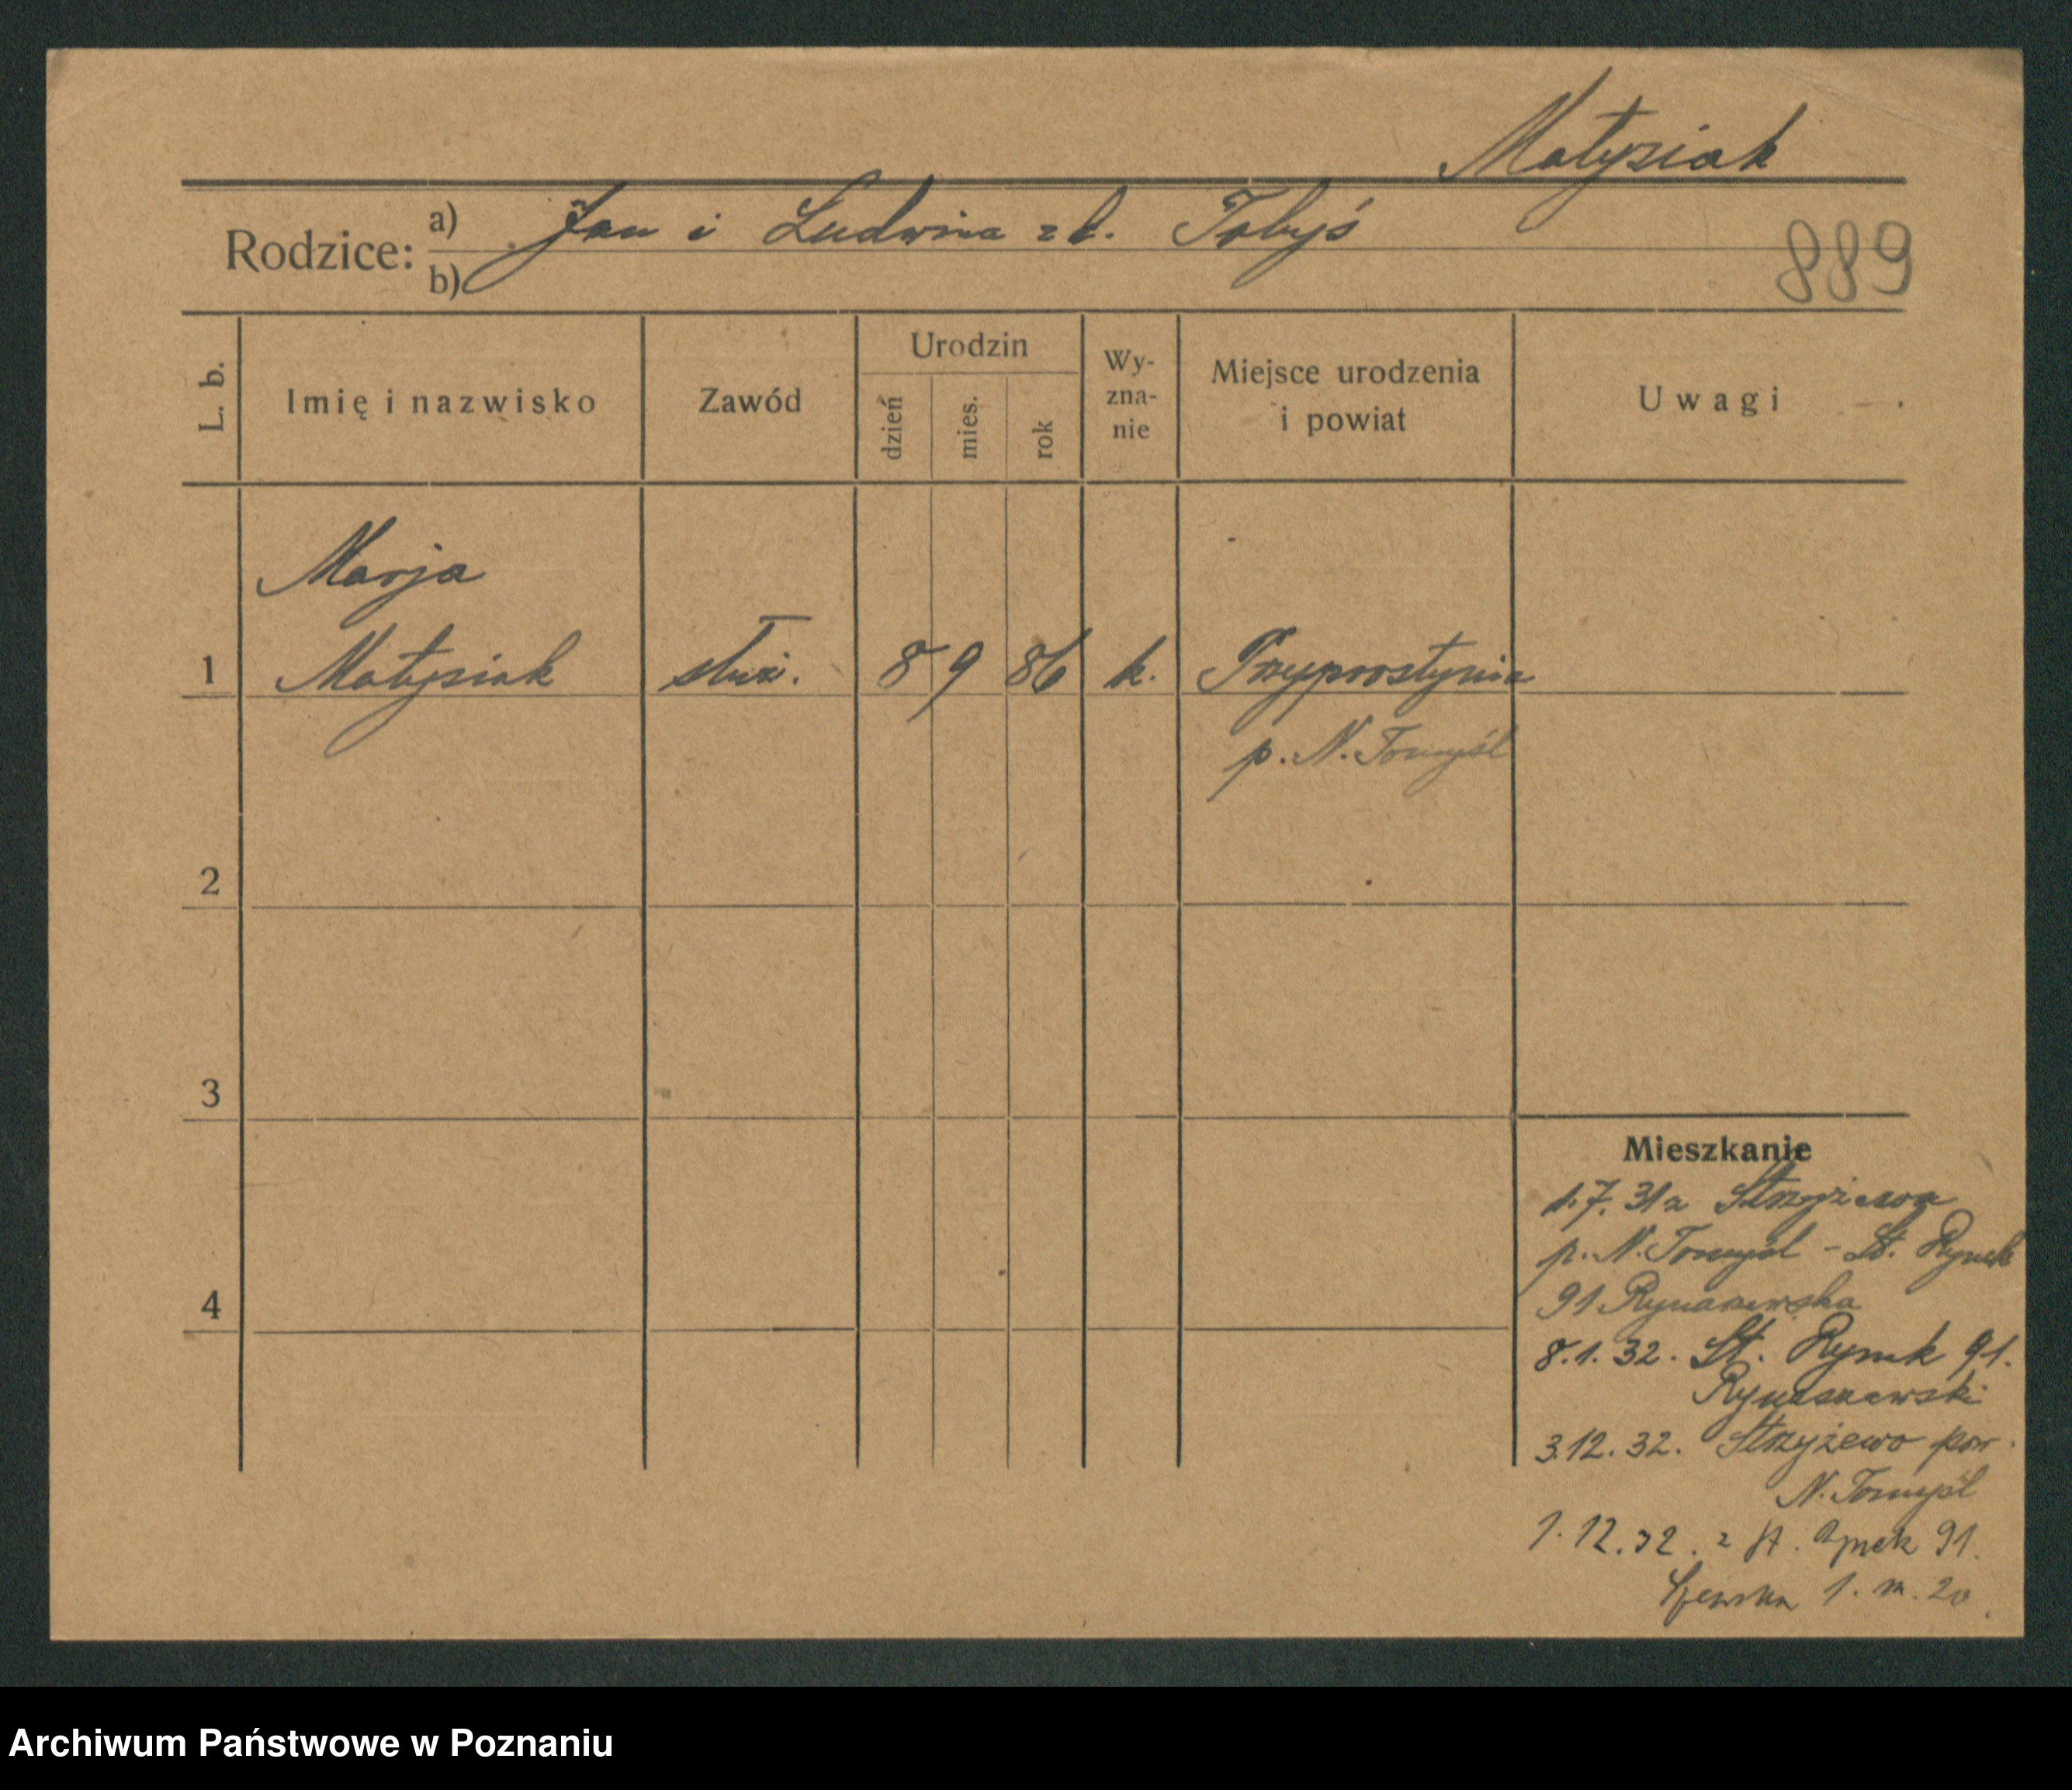 Matysiak
Rodzice: a) Jan i Ludwina z d. Tobyś
b)
889
L. b. Imię i nazwisko Zawód Urodzin dzień mies. rok Wy-zna-nie Miejsce urodzenia i powiat Uwagi
Marja
1 Matysiak służ. 8 9 86 k. Przyprostynia
p. N. Tomyśl
2
3
4
Mieszkanie
1.7.31 z Strzyżewa
p. N. Tomyśl - St. Rynek
91 Rynarzewska
8.1.32. St. Rynek 91.
Rynarzewski
3.12.32. Strzyżewo pow.
N. Tomyśl
1.12.32. z St. Rynek 91.
1. m. 20.
Archiwum Państwowe w Poznaniu